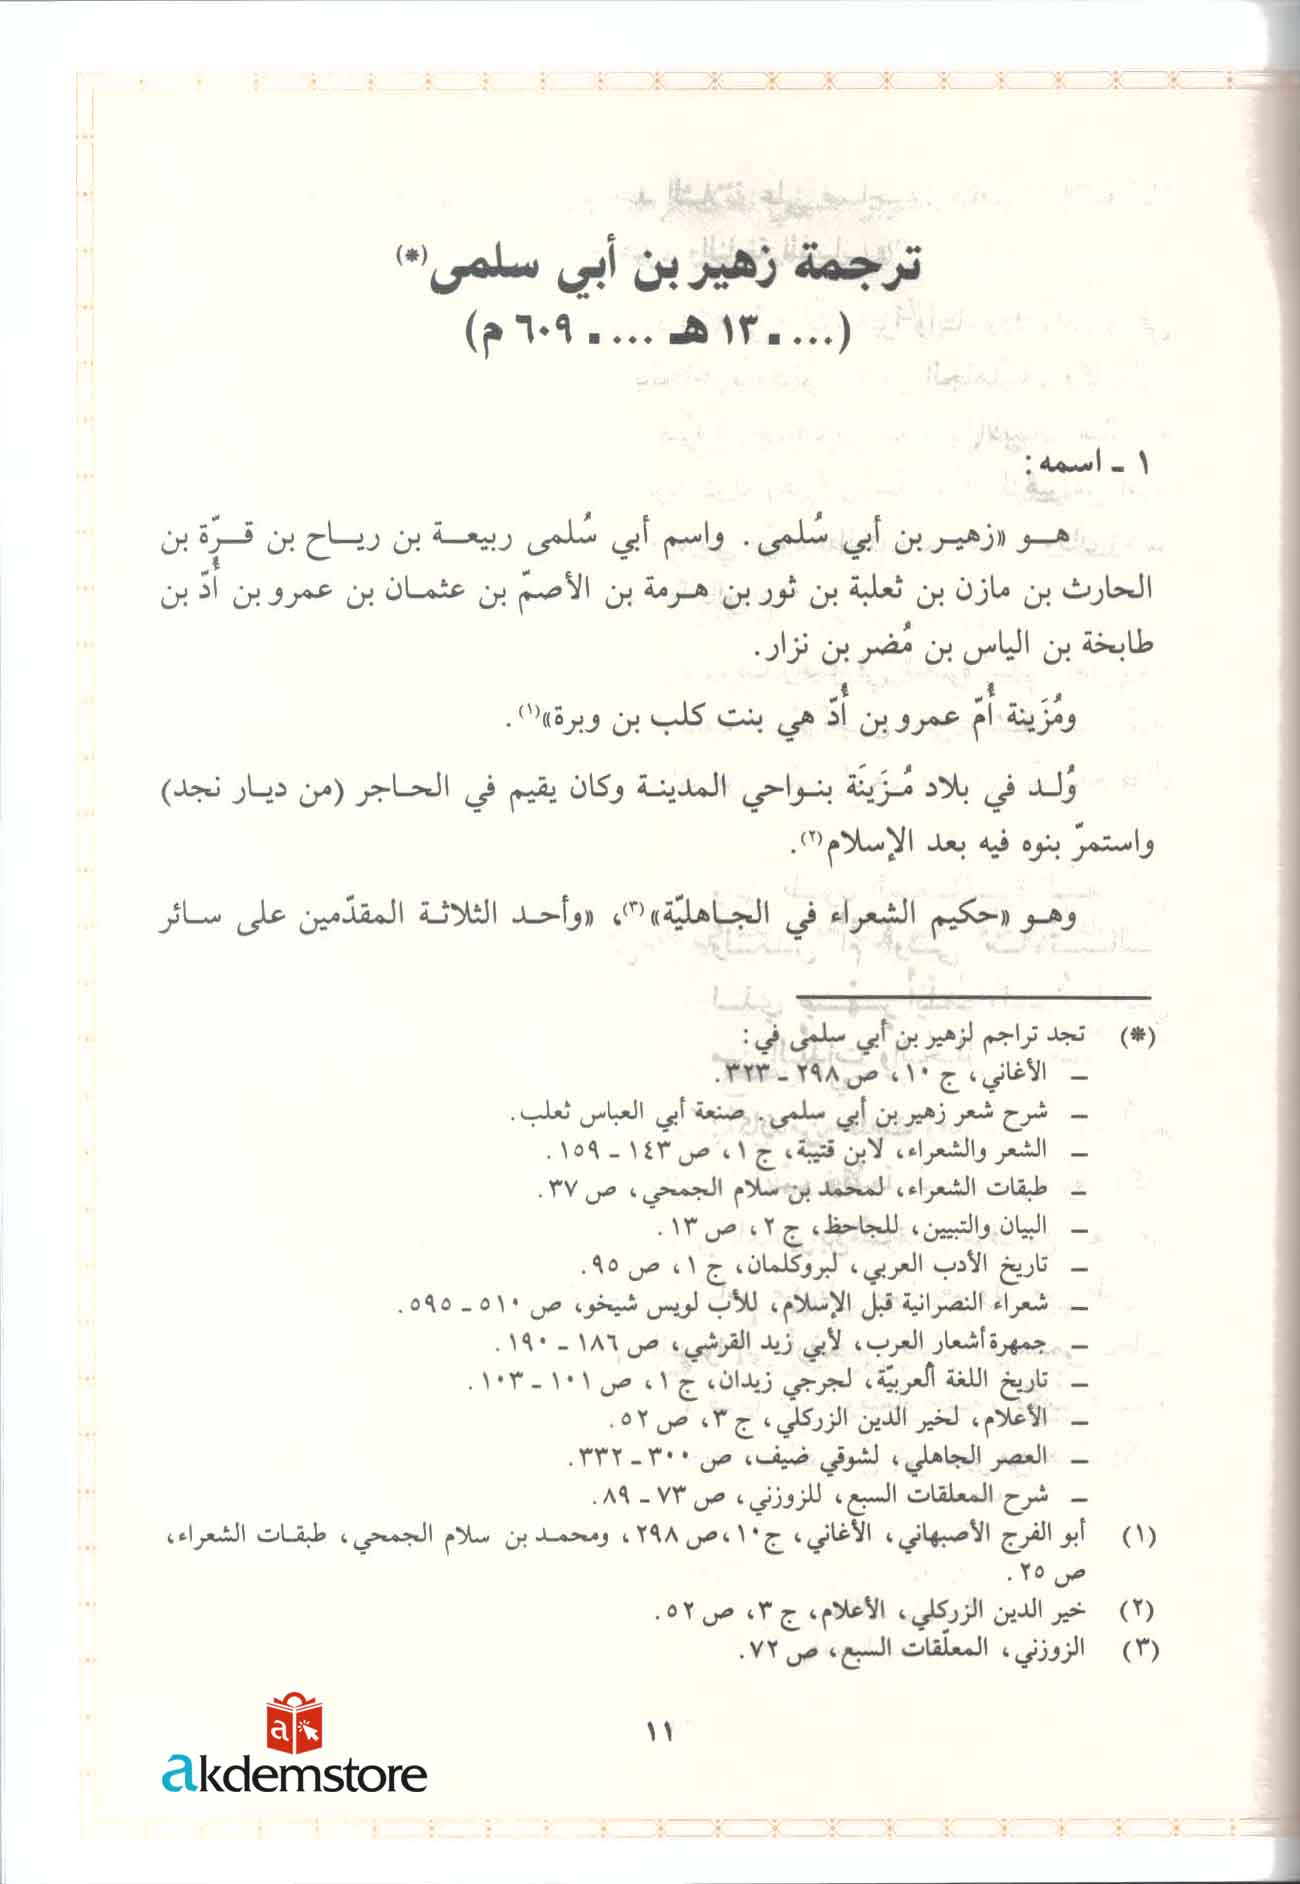 ترجمة زهير بن أبي سلمى(*)
(.... ـ ١٣ هـ .... ـ ٦٠٩ م)
١ ـ اسمه:
هـو «زهيـر بن أبي سُلمى. واسم أبي سُلمى ربيعـة بن ريـاح بن قـرّة بن
الحارث بن مازن بن ثعلبة بن ثور بن هـرمة بن الأصمّ بن عثمـان بن عمرو بن أُدّ بن
طابخة بن الياس بن مُضر بن نزار.
ومُزَينة أُمّ عمرو بن أُدّ هي بنت كلب بن وبرة»(١).
وُلـد في بلاد مُـزَينَة بنـواحي المدينـة وكان يقيم في الحـاجر (من ديـار نجد)
واستمرّ بنوه فيه بعد الإسلام(٢).
وهـو «حكيم الشعراء في الجـاهليّة»(٣)، «وأحـد الثلاثـة المقدّمين على سـائر
(*) تجد تراجم لزهير بن أبي سلمى في:
ـ الأغاني، ج ١٠، ص ٢٩٨ ـ ٣٢٣.
ـ شرح شعر زهير بن أبي سلمى. صنعة أبي العباس ثعلب.
ـ الشعر والشعراء، لابن قتيبة، ج ١، ص ١٤٣ ـ ١٥٩.
ـ طبقات الشعراء، لمحمد بن سلام الجمحي، ص ٣٧.
ـ البيان والتبيين، للجاحظ، ج ٢، ص ١٣.
ـ تاريخ الأدب العربي، لبروكلمان، ج ١، ص ٩٥.
ـ شعراء النصرانية قبل الإسلام، للأب لويس شيخو، ص ٥١٠ ـ ٥٩٥.
ـ جمهرة أشعار العرب، لأبي زيد القرشي، ص ١٨٦ ـ ١٩٠.
ـ تاريخ اللغة العربيّة، لجرجي زيدان، ج ١، ص ١٠١ ـ ١٠٣.
ـ الأعلام، لخير الدين الزركلي، ج ٣، ص ٥٢.
ـ العصر الجاهلي، لشوقي ضيف، ص ٣٠٠ ـ ٣٣٢.
ـ شرح المعلقات السبع، للزوزني، ص ٧٣ ـ ٨٩.
(١) أبو الفرج الأصبهاني، الأغاني، ج١٠، ص ٢٩٨، ومحمـد بن سلام الجمحي، طبقـات الشعراء،
ص ٢٥.
(٢) خير الدين الزركلي، الأعلام، ج ٣، ص ٥٢.
(٣) الزوزني، المعلّقات السبع، ص ٧٢.
١١
a
akdemstore